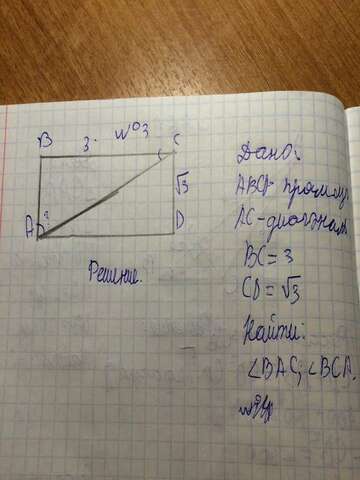 B 3. N°3 C
√3
A ? D
Решение.
Дано:
ABCD - прямоуг.
AC - диагональ
BC = 3
CD = √3
Найти:
∠BAC, ∠BCA.